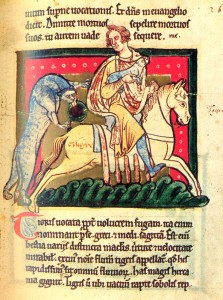 num supne uocationis. Et dñs in euangelio
dicit. Dimitte mortuos sepelire mortuos
suos. tu autem uade sequere me.
tigris
Tigris uocata ppt uolucrem fugam. ita enim
nominant pse. greci 7 medi. sagittā. Est enī
bestia uariis distincta maclis. uirtute 7 uelocitate
mirabil. ex cuius noīe flum tigris appellat. qd his
rapidissim sit omniū fluuiorꝝ. has magis hirca
nia gignit. Tigris ū ubi uacuū rapte sobolis rep